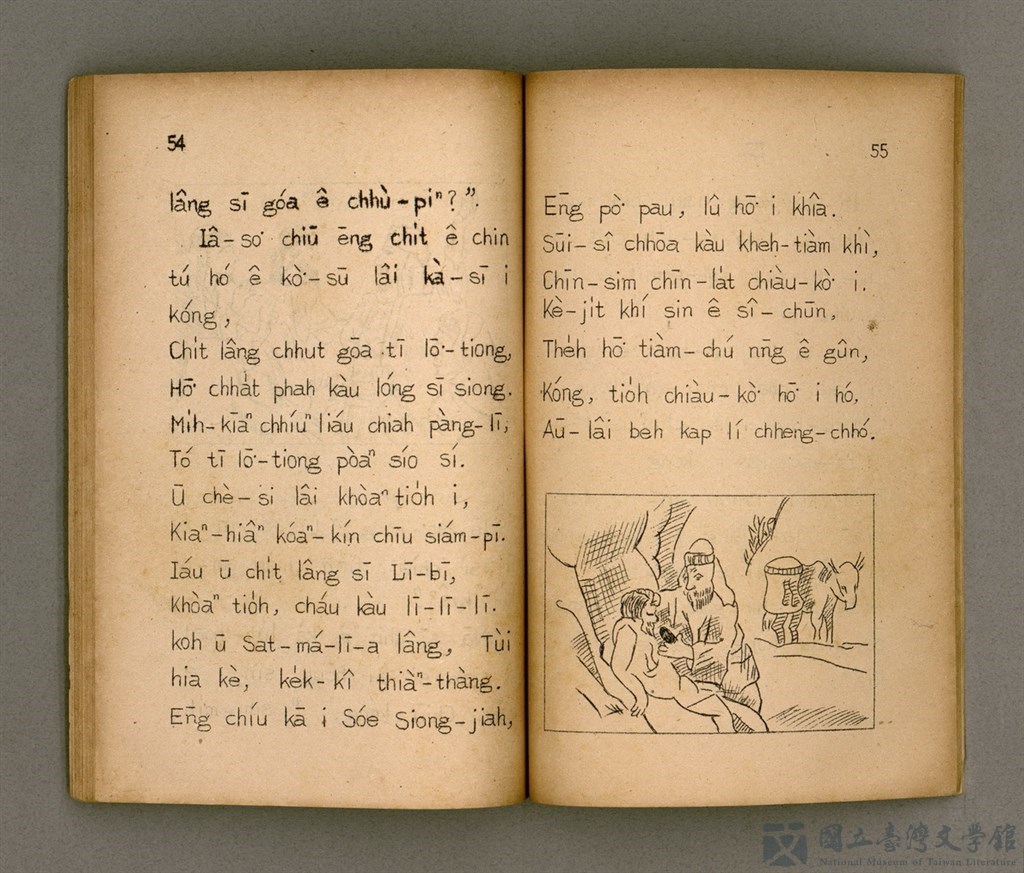 54
lâng sī góa ê chhù-piⁿ?".
Iâ-so͘ chiū ēng chi̍t ê chin
tú hó ê kò͘-sū lâi kà-sī i
kóng,
Chi̍t lâng chhut gōa tī lō͘-tiong,
Hō͘ chha̍t phah kàu lóng sī siong.
Mi̍h-kīaⁿ chhíuⁿ liáu chiah pàng-lī,
Tó tī lō͘-tiong pòaⁿ sío sí.
Ū chè-si lâi khòaⁿ tio̍h i,
Kiaⁿ-hiâⁿ kóaⁿ-kín chīu siám-pī.
Iáu ū chi̍t lâng sī Lī-bī,
Khòaⁿ tio̍h, cháu kàu lī-lī-lī.
koh ū Sat-má-lī-a lâng, Tùi
hia kè, ke̍k-kî thiàⁿ-thàng.
Ēng chíu kā i Sóe Siong-jiah,
55
Ēng pò͘ pau, lû hō͘ i khîa.
Sūi-sî chhōa kàu kheh-tiàm khì,
Chīn-sim chīn-la̍t chiàu-kò͘ i.
Kè-ji̍t khí sin ê sî-chūn,
The̍h hō͘ tiàm-chú nn̄g ê gûn,
Kóng, tio̍h chiàu-kò͘ hō͘ i hó,
Āu-lâi beh kap lí chheng-chhó.
國立臺灣文學館
National Museum of Taiwan Literature